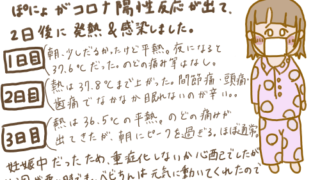 ぽにょがコロナ陽性反応が出て、
2日後に発熱&感染しました。
1日目
朝、少しだるかったけど平熱。夜になると
37.6℃だった。のどの痛み等はなし。
2日目
熱は37.8℃まで上がった。関節痛・頭痛・
歯痛でなかなか眠れないのが辛い。。
3日目
熱は36.5℃の平熱。のどの痛みが
出てきたが、朝にピークを過ぎる。ほぼ通常。
妊娠中だったため、重症化しないか心配でしたが
ベビちんは元気に動いてくれたので